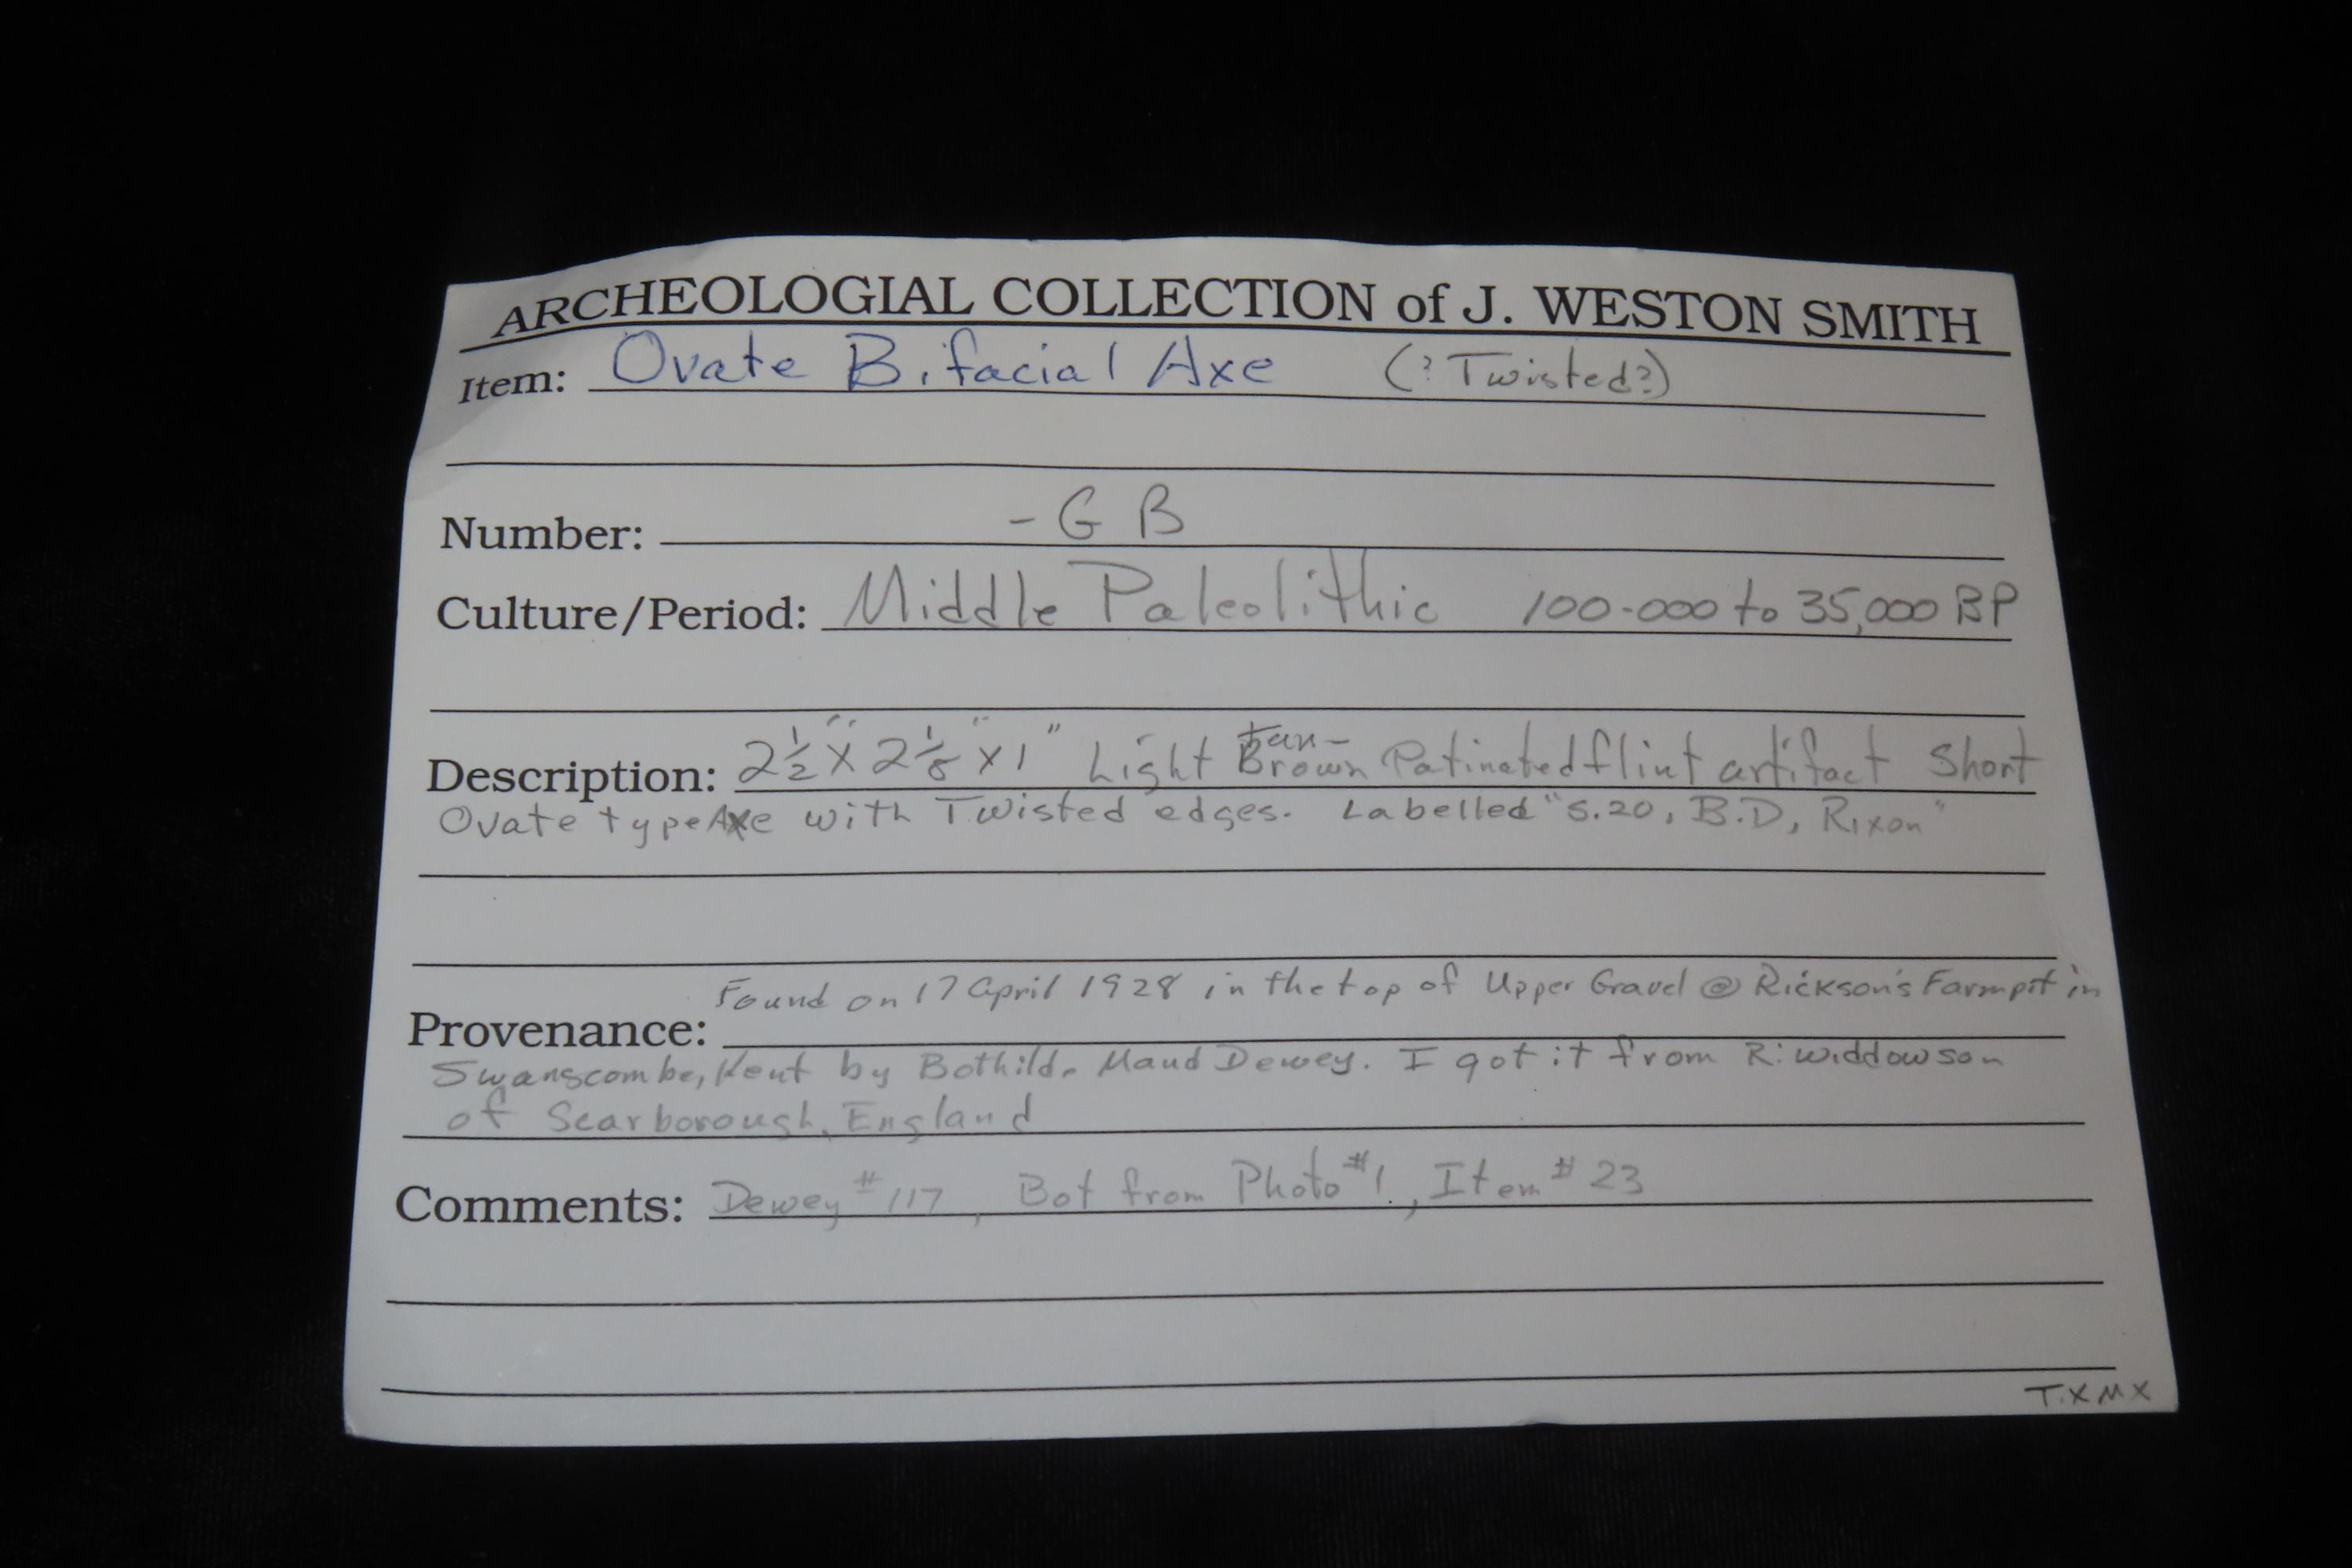 ARCHEOLOGIAL COLLECTION of J. WESTON SMITH
Item: Ovate Bifacial Axe (?Twisted?)
Number: - G B
Culture/Period: Middle Paleolithic 100-000 to 35,000 BP
Description: 2 1/2" x 2 1/8" x 1" Light tan- Brown Patinated flint artifact Short
Ovate type Axe with Twisted edges. Labelled "S.20, B.D, Rixon"
Found on 17 April 1928 in the top of Upper Gravel @ Rickson's Farmpit in
Provenance:
Swanscombe, Kent by Bothilda Maud Dewey. I got it from R. Widdowson
of Scarborough, England
Comments: Dewey #117, Bot from Photo #1, Item #23
T.XMX